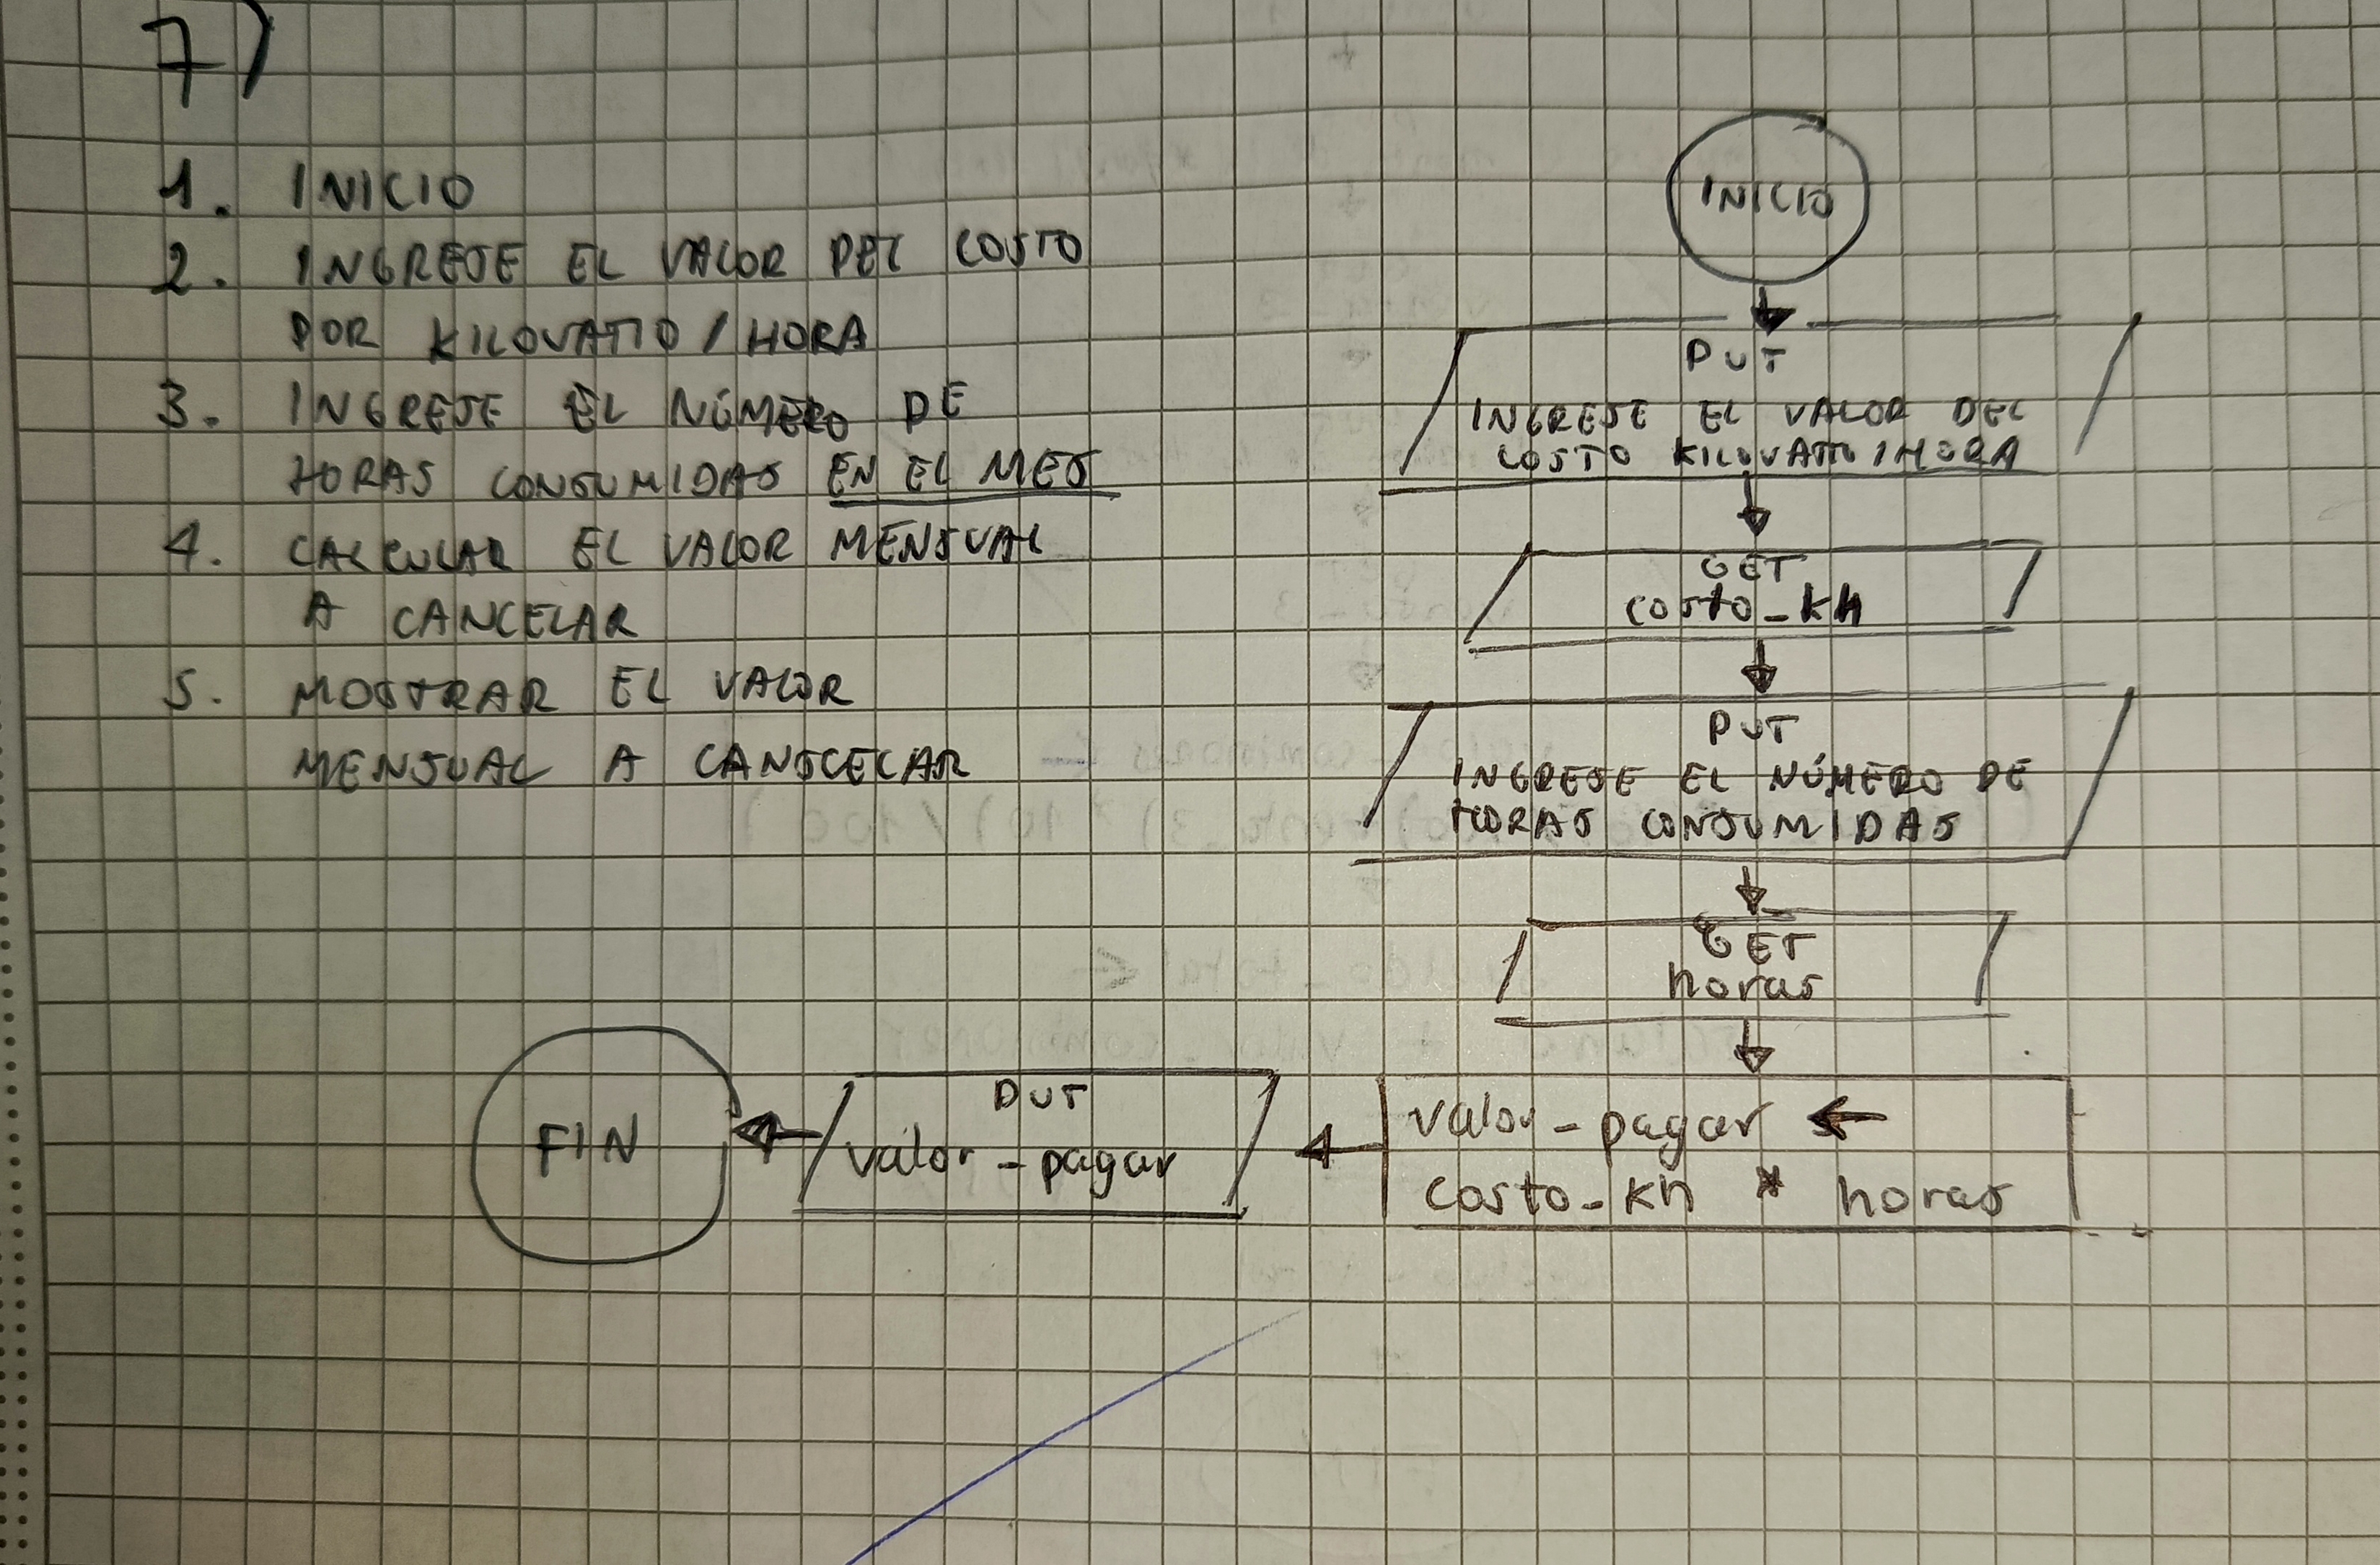 7)
1. INICIO
2. INGRESE EL VALOR DEL COSTO
POR KILOVATIO / HORA
3. INGRESE EL NÚMERO DE
HORAS CONSUMIDAS EN EL MES
4. CALCULAR EL VALOR MENSUAL
A CANCELAR
5. MOSTRAR EL VALOR
MENSUAL A CANSCELAR
INICIO
PUT
INGRESE EL VALOR DEL
COSTO KILOVATIO / HORA
GET
costo_kh
PUT
INGRESE EL NÚMERO DE
HORAS CONSUMIDAS
GET
horas
valor_pagar ←
costo_kh * horas
PUT
valor_pagar
FIN